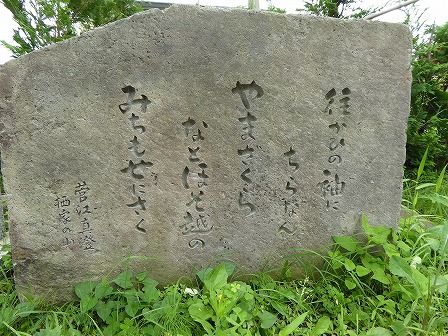 往かひの袖に
ちらなん
やまざくら
などほそ越の
みちもせにさく
菅江真澄
栖家の山